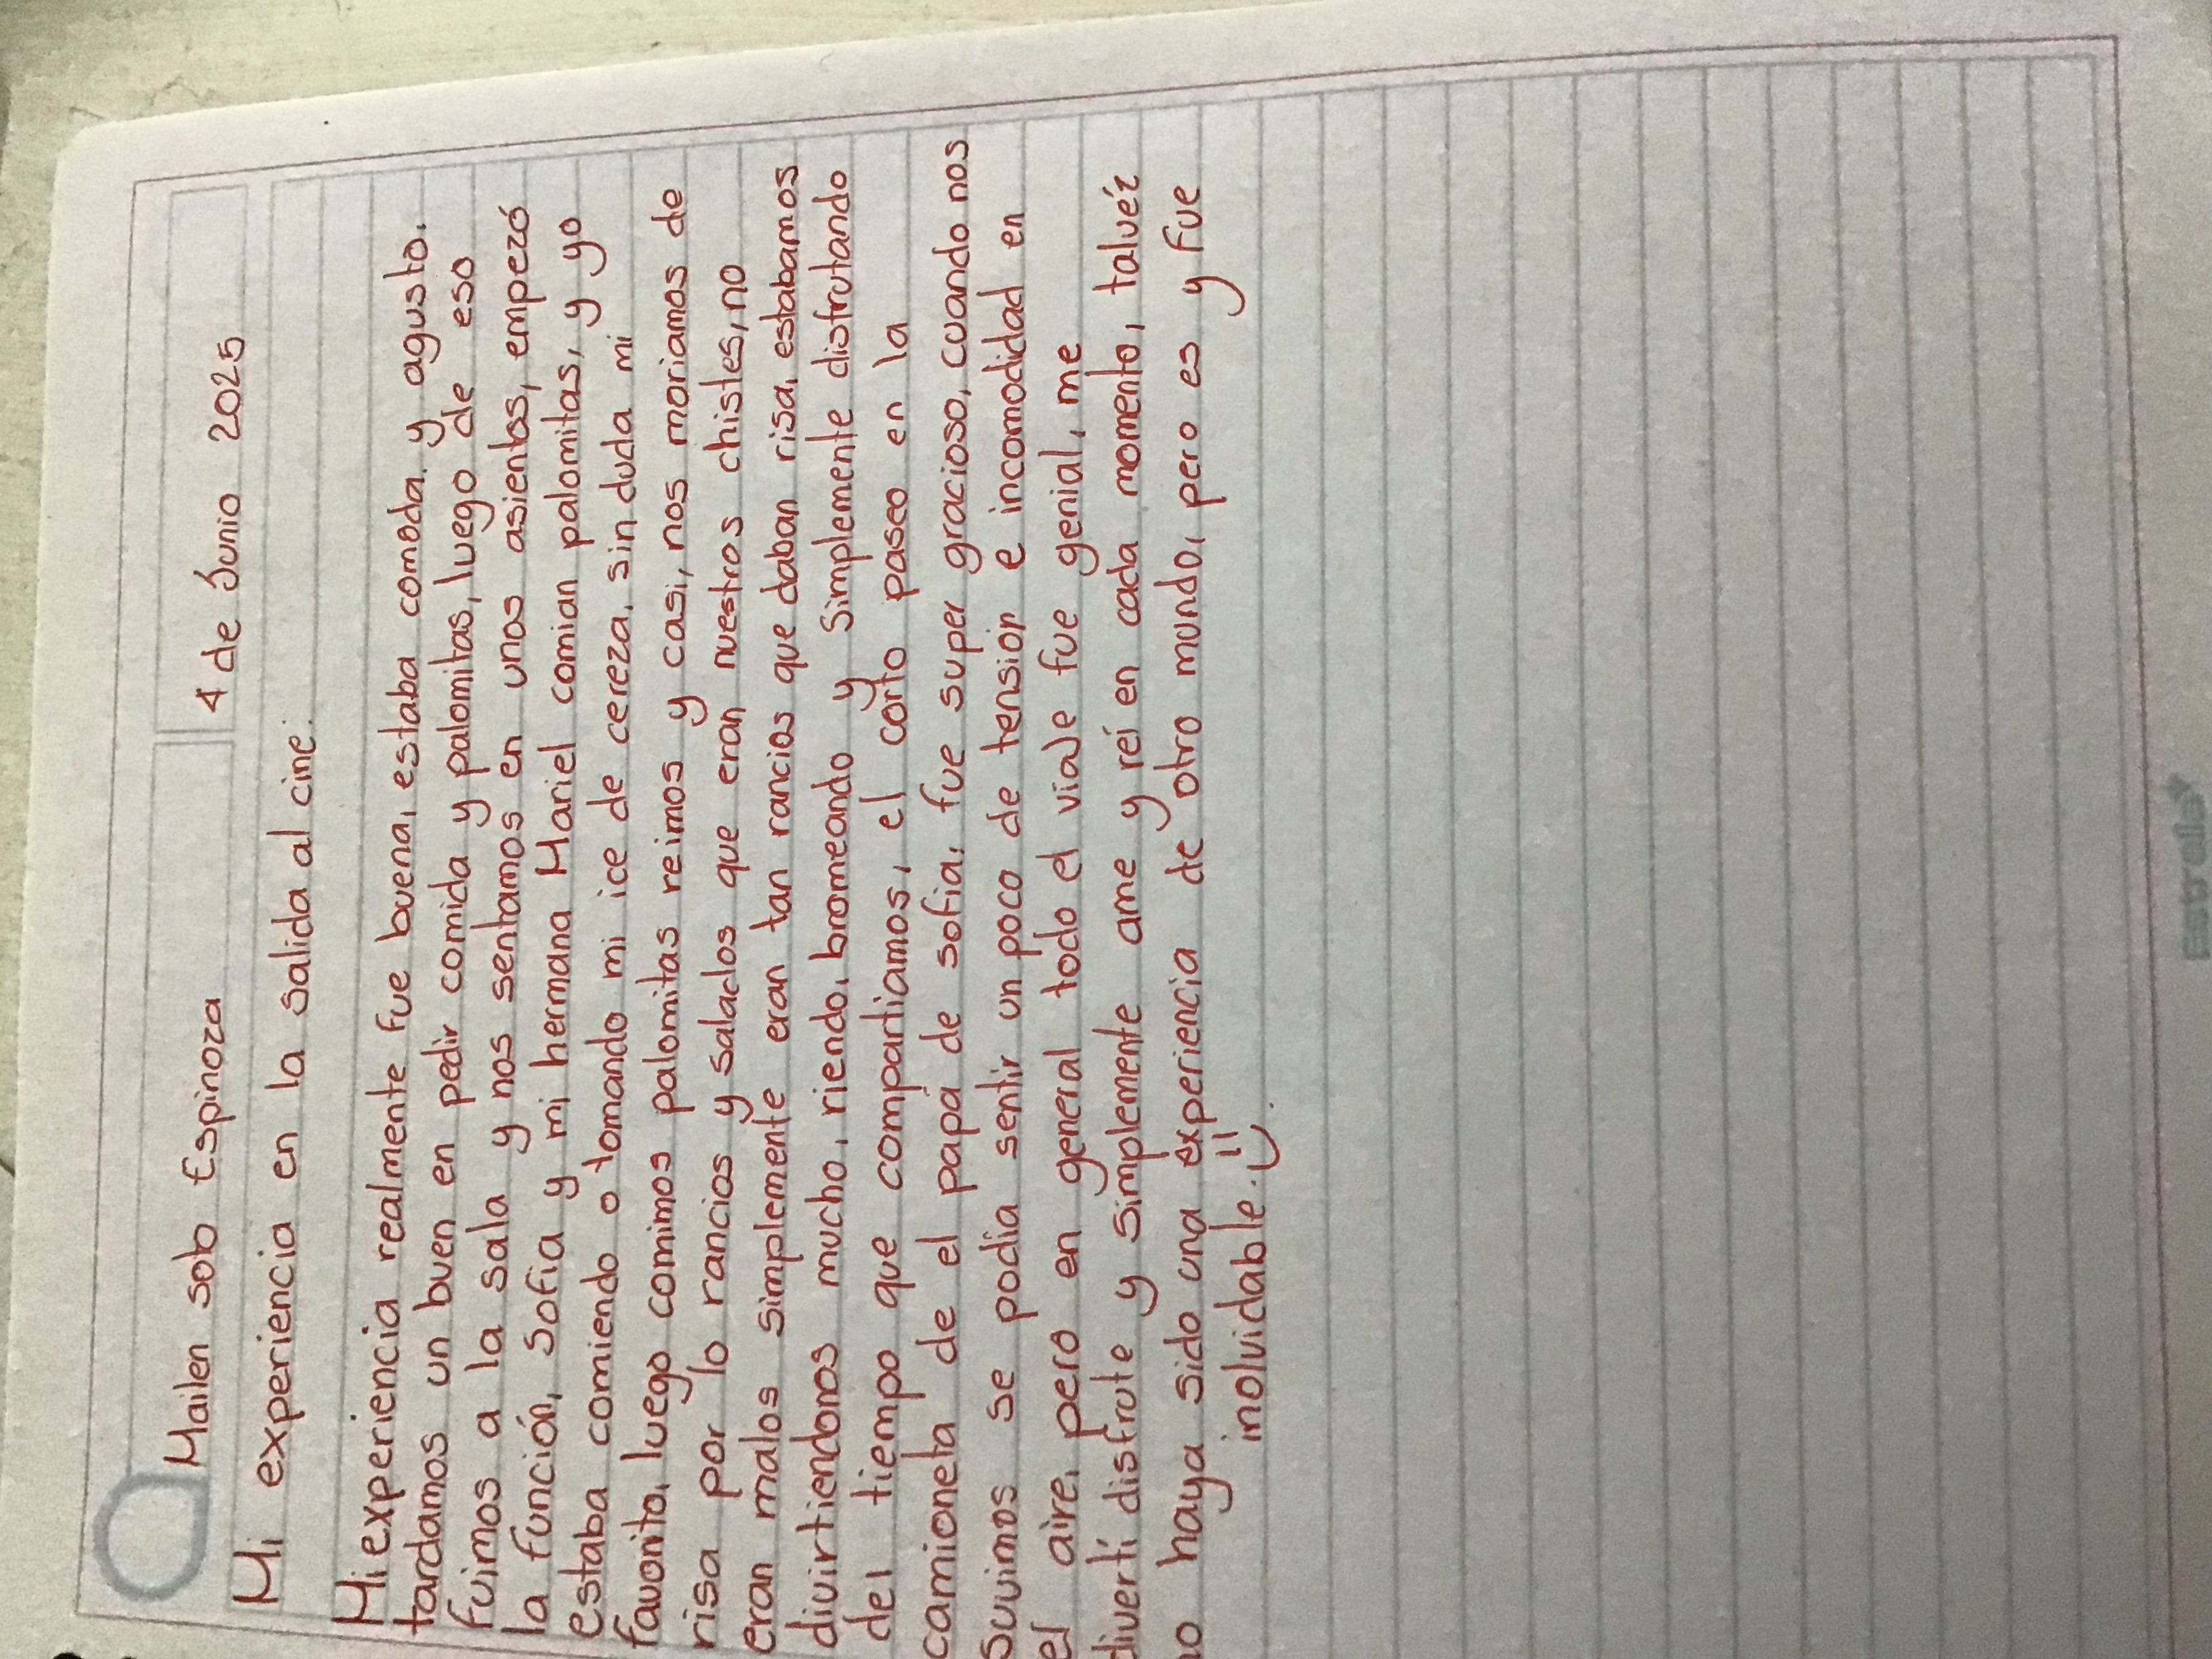 Mailen sob Espinoza
4 de Junio 2025
Mi experiencia en la salida al cine.
Mi experiencia realmente fue buena, estaba comoda y agusto.
tardamos un buen en pedir comida y palomitas, luego de eso
fuimos a la sala y nos sentamos en unos asientos, empezó
la función, sofia y mi hermana Mariel comian palomitas, y yo
estaba comiendo o tomando mi ice de cereza, sin duda mi
favorito, luego comimos palomitas reimos y casi, nos moriamos de
risa por lo rancios y salados que eran nuestros chistes, no
eran malos simplemente eran tan rancios que daban risa, estabamos
divirtiendonos mucho, riendo, bromeando y simplemente disfrutando
del tiempo que compartiamos, el corto paseo en la
camioneta de el papá de sofia, fue super gracioso, cuando nos
suvimos se podia sentir un poco de tensión e incomodidad en
el aire, pero en general todo el viaje fue genial, me
divertí disfrute y simplemente ame y reí en cada momento, talvéz
no haya sido una experiencia de otro mundo, pero es y fue
inolvidable.